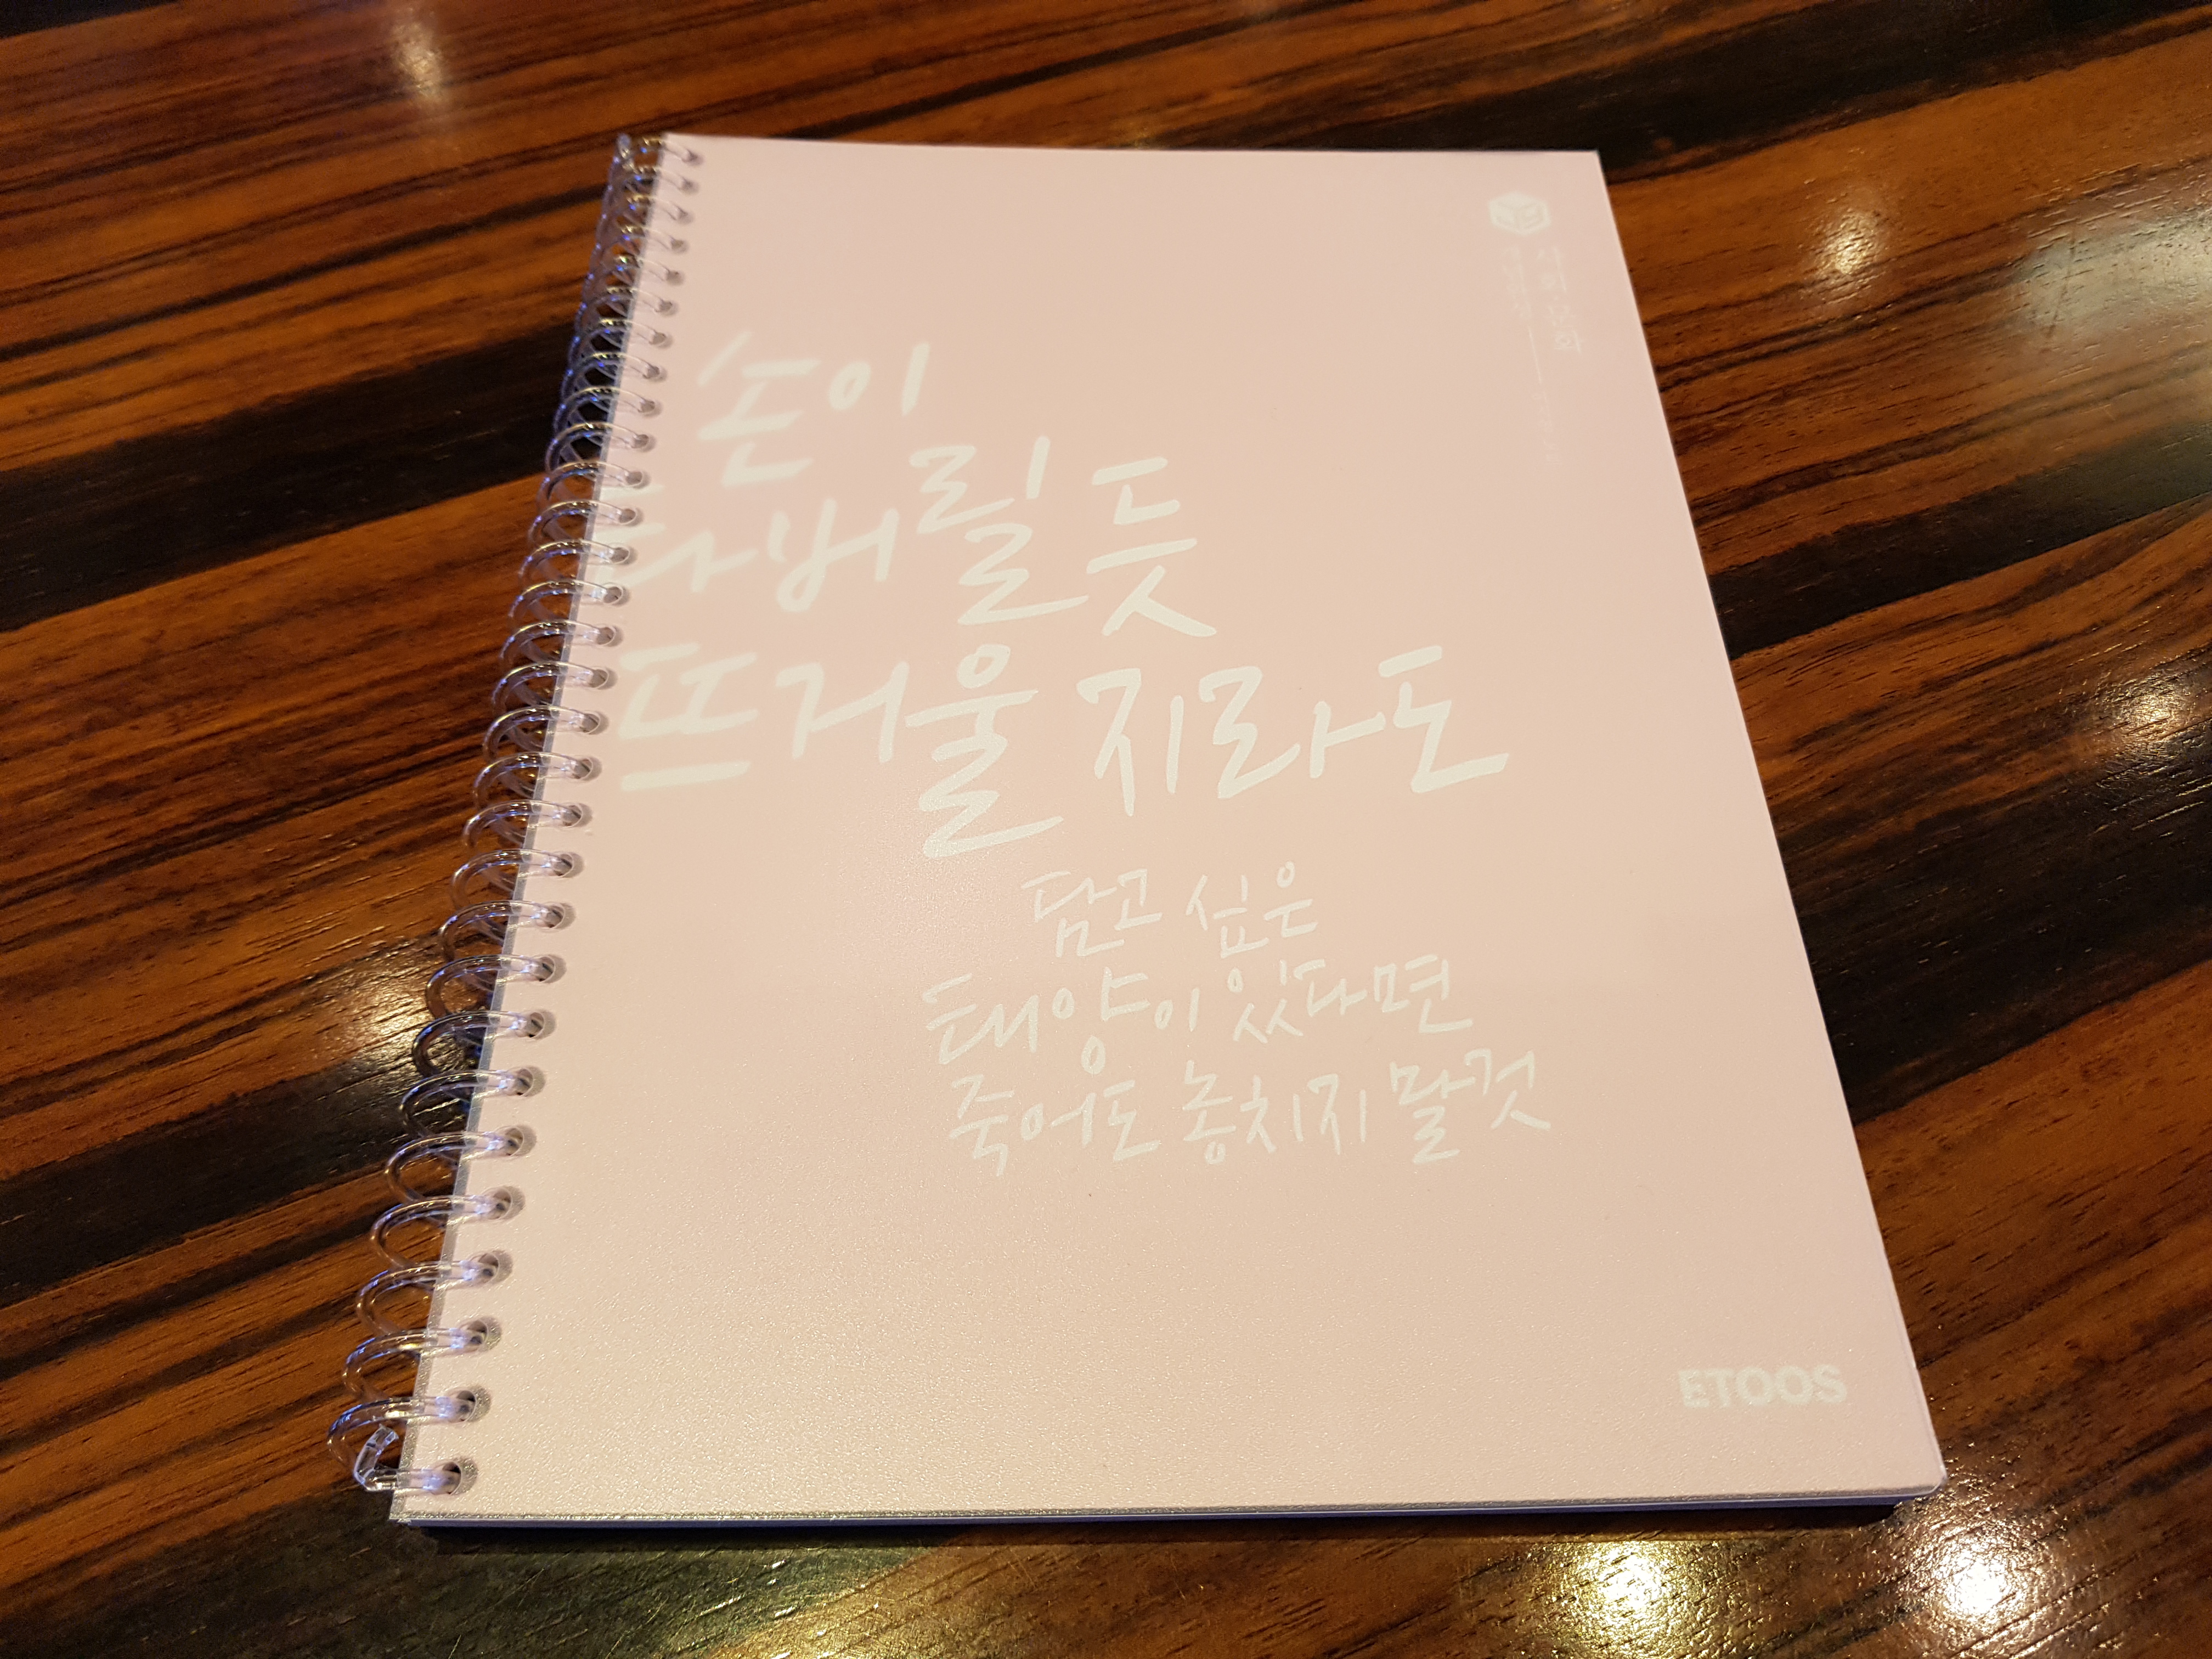 사회·문화
손이
타버릴 듯
뜨거울지라도
담고 싶은
태양이 있다면
죽어도 놓치지 말것
ETOOS